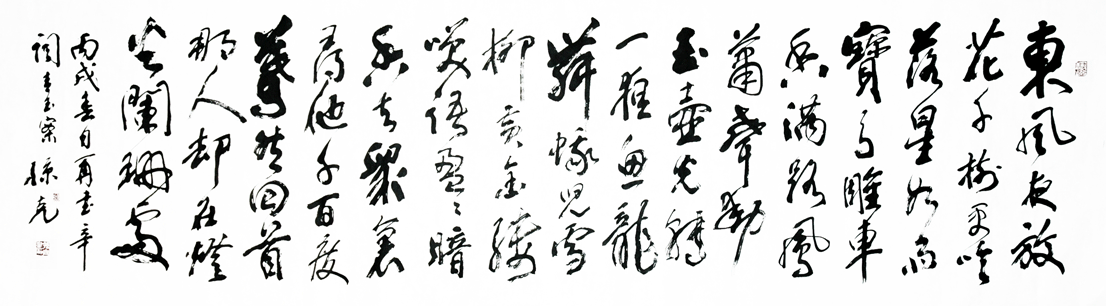 東風夜放
花千樹更吹
落星如雨
寶馬雕車
香滿路鳳
蕭聲動
玉壺光轉
一夜魚龍
舞蛾兒雪
柳黃金縷
笑語盈〻暗
香去衆裏
尋他千百度
驀然回首
那人却在燈
火闌珊處
丙戌春月再書辛
詞青玉案